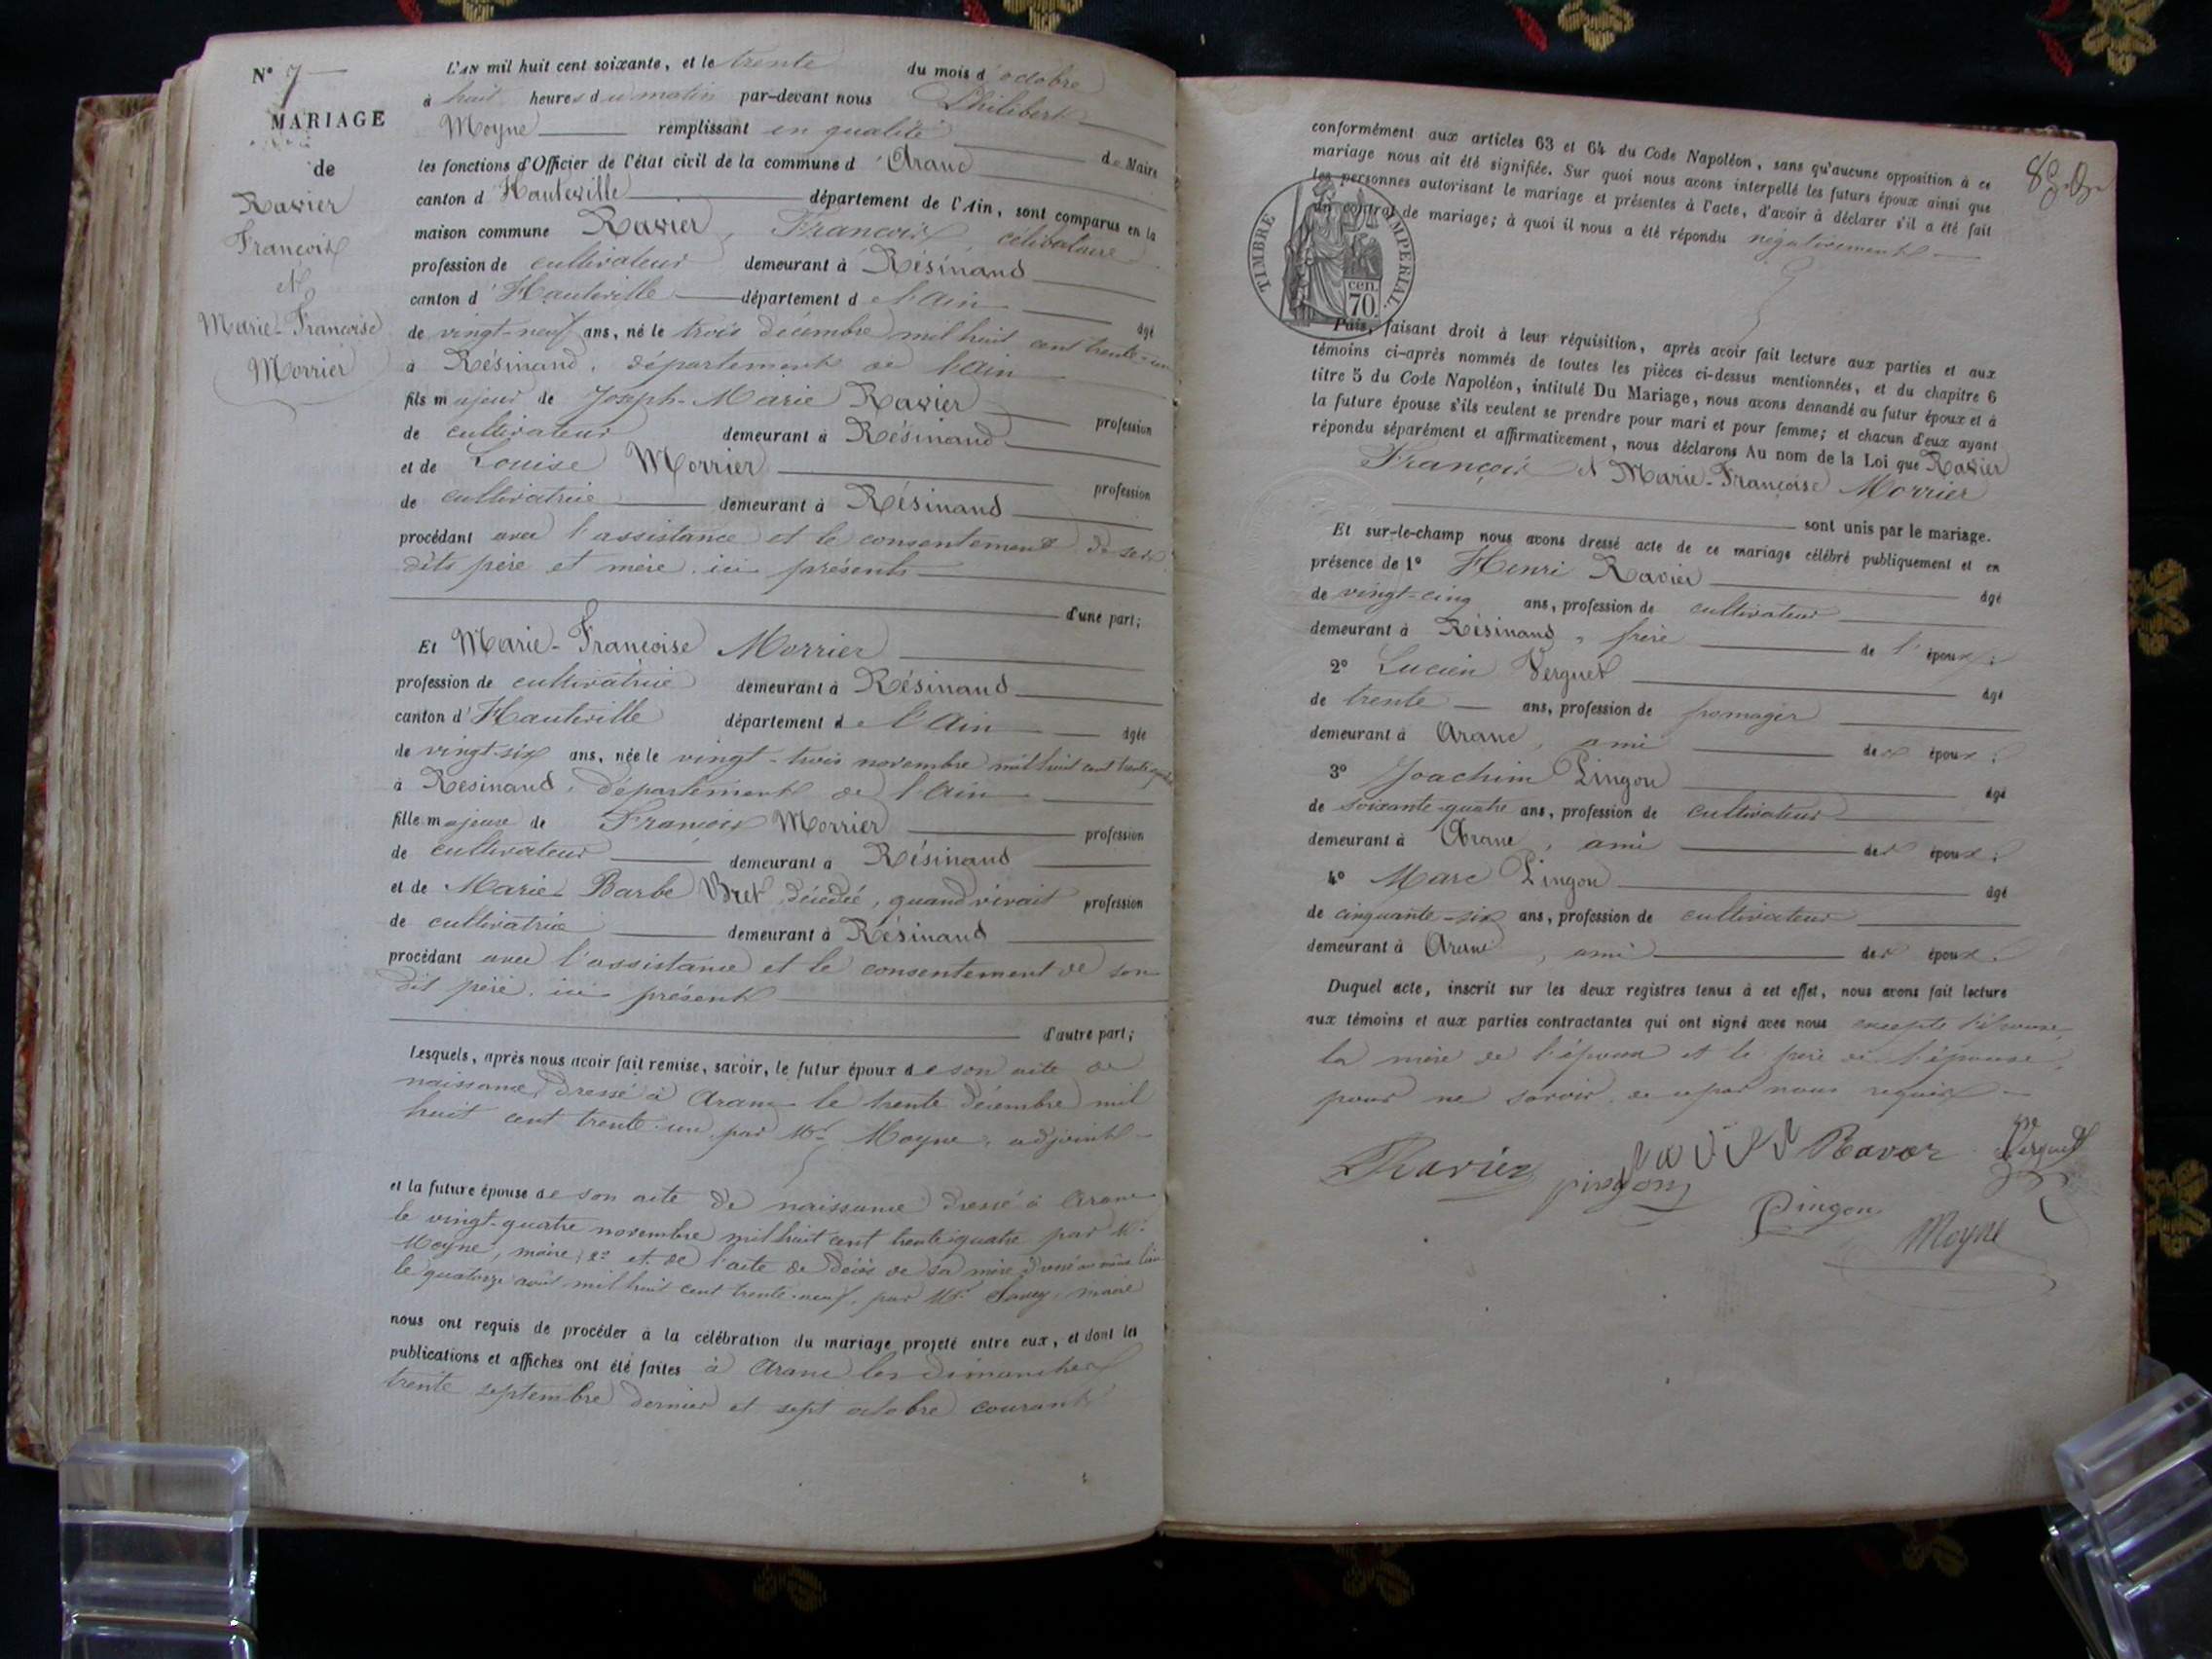 N° 7
MARIAGE
de
Ravier
François
et
Marie-Françoise
Morrier
L'AN mil huit cent soixante, et le trente du mois d'octobre
à huit heures du matin par-devant nous Philibert
Moyne remplissant en qualité de Maire
les fonctions d'Officier de l'état civil de la commune d'Aranc
canton d'Hauteville département de l'Ain, sont comparus en la
maison commune Ravier, François, célibataire
profession de cultivateur demeurant à Résinand
canton d'Hauteville département de l'Ain âgé
de vingt-neuf ans, né le trois décembre mil huit cent trente-un
à Résinand, département de l'Ain
fils majeur de Joseph-Marie Ravier profession
de cultivateur demeurant à Résinand
et de Louise Morrier profession
de cultivatrice demeurant à Résinand
procédant avec l'assistance et le consentement de ses
dits père et mère, ici présents
d'une part;
Et Marie-Françoise Morrier
profession de cultivatrice demeurant à Résinand
canton d'Hauteville département de l'Ain âgée
de vingt-six ans, née le vingt-trois novembre mil huit cent trente quatre
à Résinand, département de l'Ain
fille majeure de François Morrier profession
de cultivateur demeurant à Résinand
et de Marie-Barbe Bret, décédée, quand vivait profession
de cultivatrice demeurant à Résinand
procédant avec l'assistance et le consentement de son
dit père, ici présent
d'autre part;
Lesquels, après nous avoir fait remise, savoir, le futur époux de son acte de
naissance, dressé à Aranc le trente décembre mil
huit cent trente-un, par Mr Moyne, adjoint
et la future épouse de son acte de naissance dressé à Aranc
le vingt-quatre novembre mil huit cent trente-quatre par Mr
Moyne, maire; 2° et de l'acte de décès de sa mère dressé au même lieu
le quatorze août mil huit cent trente-neuf, par Mr Savey, maire
nous ont requis de procéder à la célébration du mariage projeté entre eux, et dont les
publications et affiches ont été faites à Aranc les dimanches
trente septembre dernier et sept octobre courant
conformément aux articles 63 et 64 du Code Napoléon, sans qu'aucune opposition à ce
mariage nous ait été signifiée. Sur quoi nous avons interpellé les futurs époux ainsi que
les personnes autorisant le mariage et présentes à l'acte, d'avoir à déclarer s'il a été fait
un contrat de mariage; à quoi il nous a été répondu négativement
TIMBRE IMPERIAL
70 cen.
Puis, faisant droit à leur réquisition, après avoir fait lecture aux parties et aux
témoins ci-après nommés de toutes les pièces ci-dessus mentionnées, et du chapitre 6
titre 5 du Code Napoléon, intitulé Du Mariage, nous avons demandé au futur époux et à
la future épouse s'ils veulent se prendre pour mari et pour femme; et chacun d'eux ayant
répondu séparément et affirmativement, nous déclarons Au nom de la Loi que Ravier
François et Marie-Françoise Morrier
sont unis par le mariage.
Et sur-le-champ nous avons dressé acte de ce mariage célébré publiquement et en
présence de 1° Henri Ravier âgé
de vingt-cinq ans, profession de cultivateur
demeurant à Résinand, frère de l'époux;
2° Lucien Verguet âgé
de trente ans, profession de fromager
demeurant à Aranc, ami des époux;
3° Joachim Pingon âgé
de soixante-quatre ans, profession de cultivateur
demeurant à Aranc, ami des époux;
4° Marc Pingon âgé
de cinquante-six ans, profession de cultivateur
demeurant à Aranc, ami des époux.
Duquel acte, inscrit sur les deux registres tenus à cet effet, nous avons fait lecture
aux témoins et aux parties contractantes qui ont signé avec nous excepté l'épouse,
la mère de l'époux et le père de l'épouse,
pour ne savoir, de ce par nous requis
Ravier pingon Verguet
Pingon
Moyne